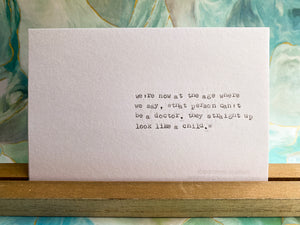 we;re now at the age where
we say, sthat person can;t
be a doctor. they straight up
look like a child.*